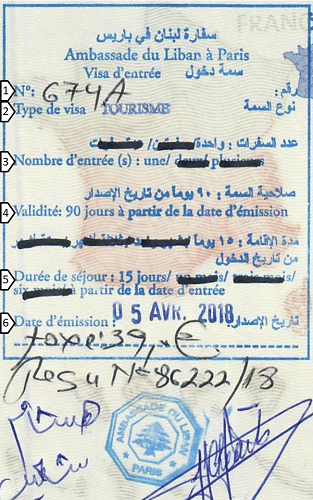 FRANC
سفارة لبنان في باريس
Ambassade du Liban à Paris
Visa d'entrée سمة دخول
1 N°: 674A رقم :
2 Type de visa TOURISME نوع السمة
عدد السفرات : واحدة/
3 Nombre d'entrée (s) : une/
صلاحية السمة : ٩٠ يوما من تاريخ الإصدار
4 Validité: 90 jours à partir de la date d'émission
مدة الإقامة : ١٥ يوما
من تاريخ الدخول
5 Durée de séjour : 15 jours/
à partir de la date d'entrée
6 Date d'émission : 05 AVR. 2018 تاريخ الإصدار:
taxe: 39,- €
Resu N= 86222/18
AMBASSADE DU LIBAN
PARIS